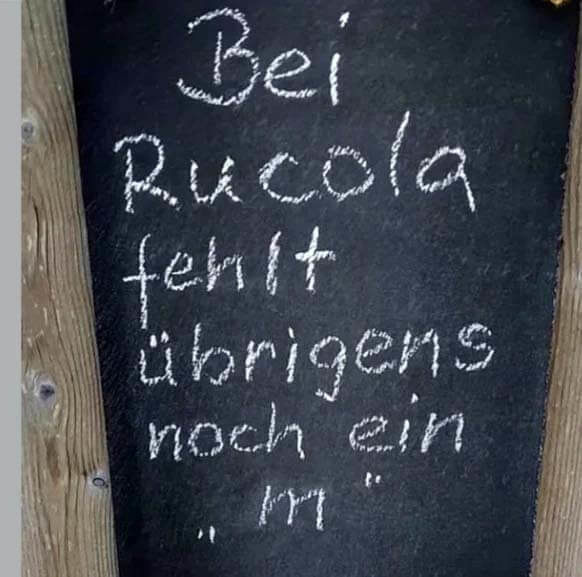 Bei
Rucola
fehlt
übrigens
noch ein
„m"